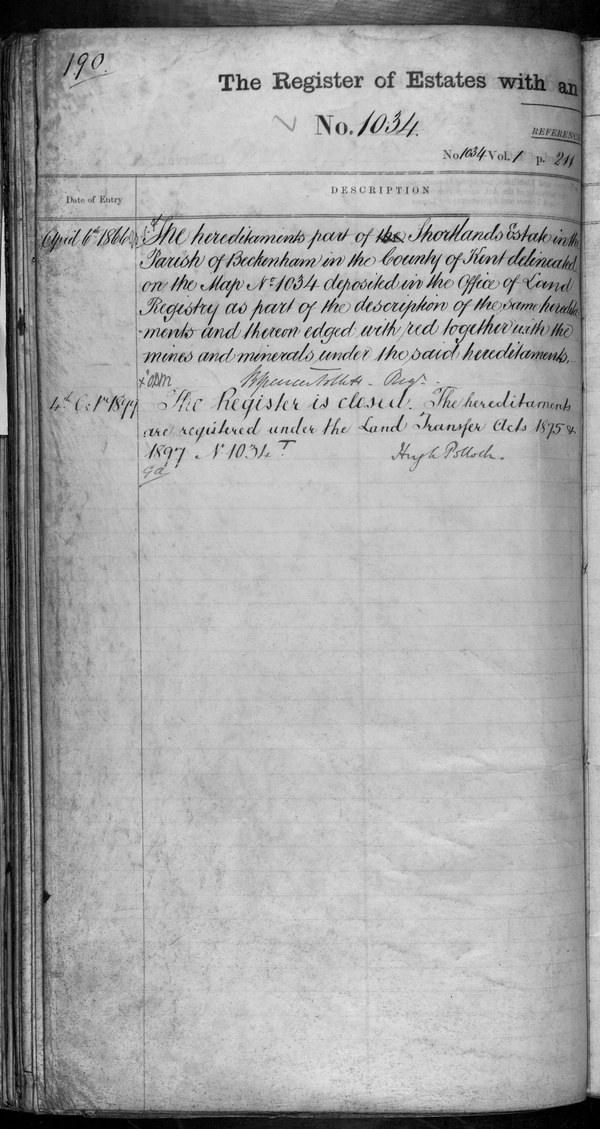 190.
The Register of Estates with an
No. 1034.
REFERENCE
No 1034 Vol. 1 p. 211
Date of Entry
DESCRIPTION
April 6th 1866 The hereditaments part of the Shortlands Estate in the
Parish of Beckenham in the County of Kent delineated
on the Map No 1034 deposited in the Office of Land
Registry as part of the description of the same heredita
-ments and thereon edged with red together with the
mines and minerals under the said hereditaments.
Regr.
4th Octr 1899 The Register is closed. The hereditaments
are registered under the Land Transfer Acts 1875 &
1897 No 1034 T Hugh Pollock.